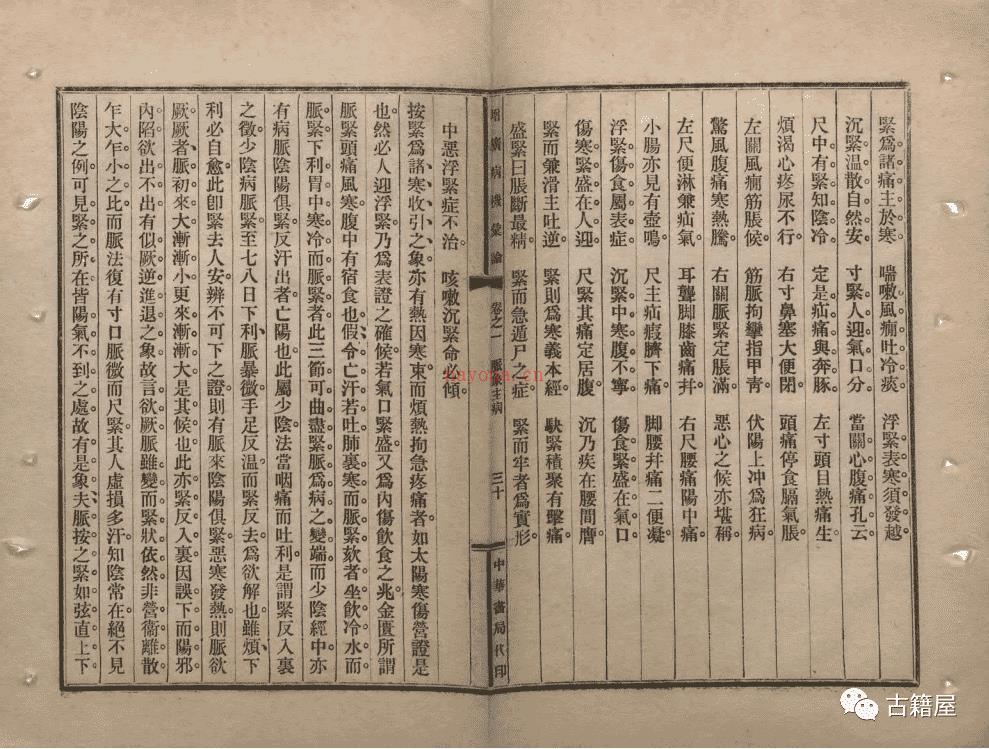 緊爲諸痛主於寒　喘嗽風癇吐冷痰　浮緊表寒須發越
沉緊溫散自然安　寸緊人迎氣口分　當關心腹痛孔云
尺中有緊知陰冷　定是疝痛與奔豚　左寸頭目熱痛生
煩渴心疼尿不行　右寸鼻塞大便閉　頭痛停食膈氣脹
左關風癇筋脹候　筋脈拘攣指甲青　伏陽上冲爲狂病
驚風腹痛寒熱騰　右關脈緊定脹滿　惡心之候亦堪稱
左尺便淋兼疝氣　耳聾脚膝齒痛幷　右尺腰痛陽中痛
小腸亦見有壺鳴　尺主疝瘕臍下痛　脚腰幷痛二便凝
浮緊傷食屬表症　沉緊中寒腹不寧　傷食緊盛在氣口
傷寒緊盛在人迎　尺緊其痛定居腹　沉乃疾在腰間膺
緊而兼滑主吐逆　緊則爲寒義本經　缺緊積聚有擊痛
盛緊曰脹斷最精　緊而急遁尸之症　緊而牢者爲實形
增廣病機彙論　卷之一　脈　主病　三十　中華書局代印
中惡浮緊症不治　咳嗽沉緊命必傾
按緊爲諸寒收引之象亦有熱因寒束而煩熱拘急疼痛者如太陽寒傷營證是
也然必人迎浮緊乃爲表證之確候若氣口緊盛又爲內傷飲食之兆金匱所謂
脈緊頭痛風寒腹中有宿食也假令亡汗若吐肺裏寒而脈緊欬者坐飲冷水而
脈緊下利胃中寒冷而脈緊者此三節可曲盡緊脈爲病之變端而少陰經中亦
有病脈陰陽俱緊反汗出者亡陽也此屬少陰法當咽痛而吐利是謂緊反入裏
之徵少陰病脈緊至七八日下利脈暴微手足反溫而緊反去爲欲解也雖煩下
利必自愈此卽緊去人安辨不可下之證則有脈來陰陽俱緊惡寒發熱則脈欲
厥厥者脈初來大漸漸小更來漸漸大是其候也此亦緊反入裏因誤下而陽邪
內陷欲出不出有似厥逆進退之象故言欲厥脈雖變而緊狀依然非營衞離散
乍大乍小之比而脈法復有寸口脈微而尺緊其人虛損多汗知陰常在絕不見
陰陽之例可見緊之所在皆陽氣不到之處故有是象夫脈按之緊如弦直上下
古籍屋